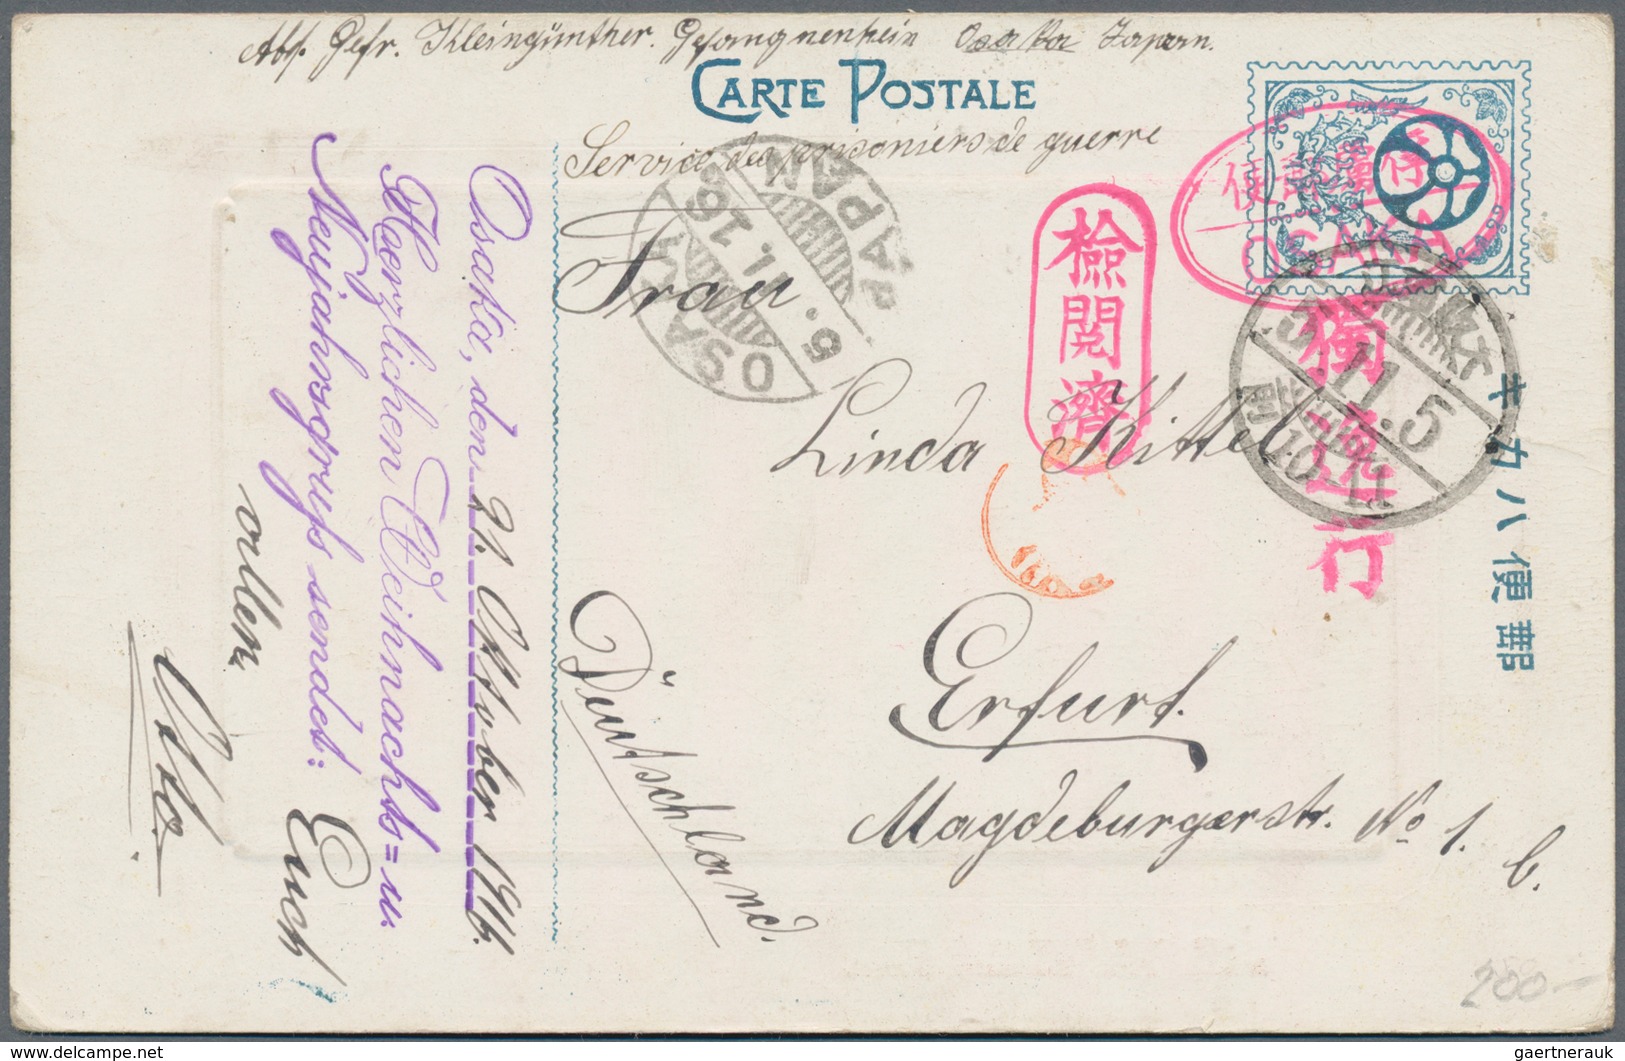 Abs. Gefr. Kleingünther. Gefangnenheim Osaka Japan.
CARTE POSTALE
Service des prisoniers de guerre
Frau
Linda Kittel
Erfurt.
Magdeburgerstr. No 1. b.
Deutschland.
Osaka, den 21. Oktober 1916.
Herzlichen Weihnachts= u.
Neujahrsgruss sendet: Euch
allen
Otto.
OSAKA
5.11.16
JAPAN
檢閲濟
OSAKA
5.11.5
10-11
郵便ハカキ
200-
gaertnerauk
www.delcampe.net